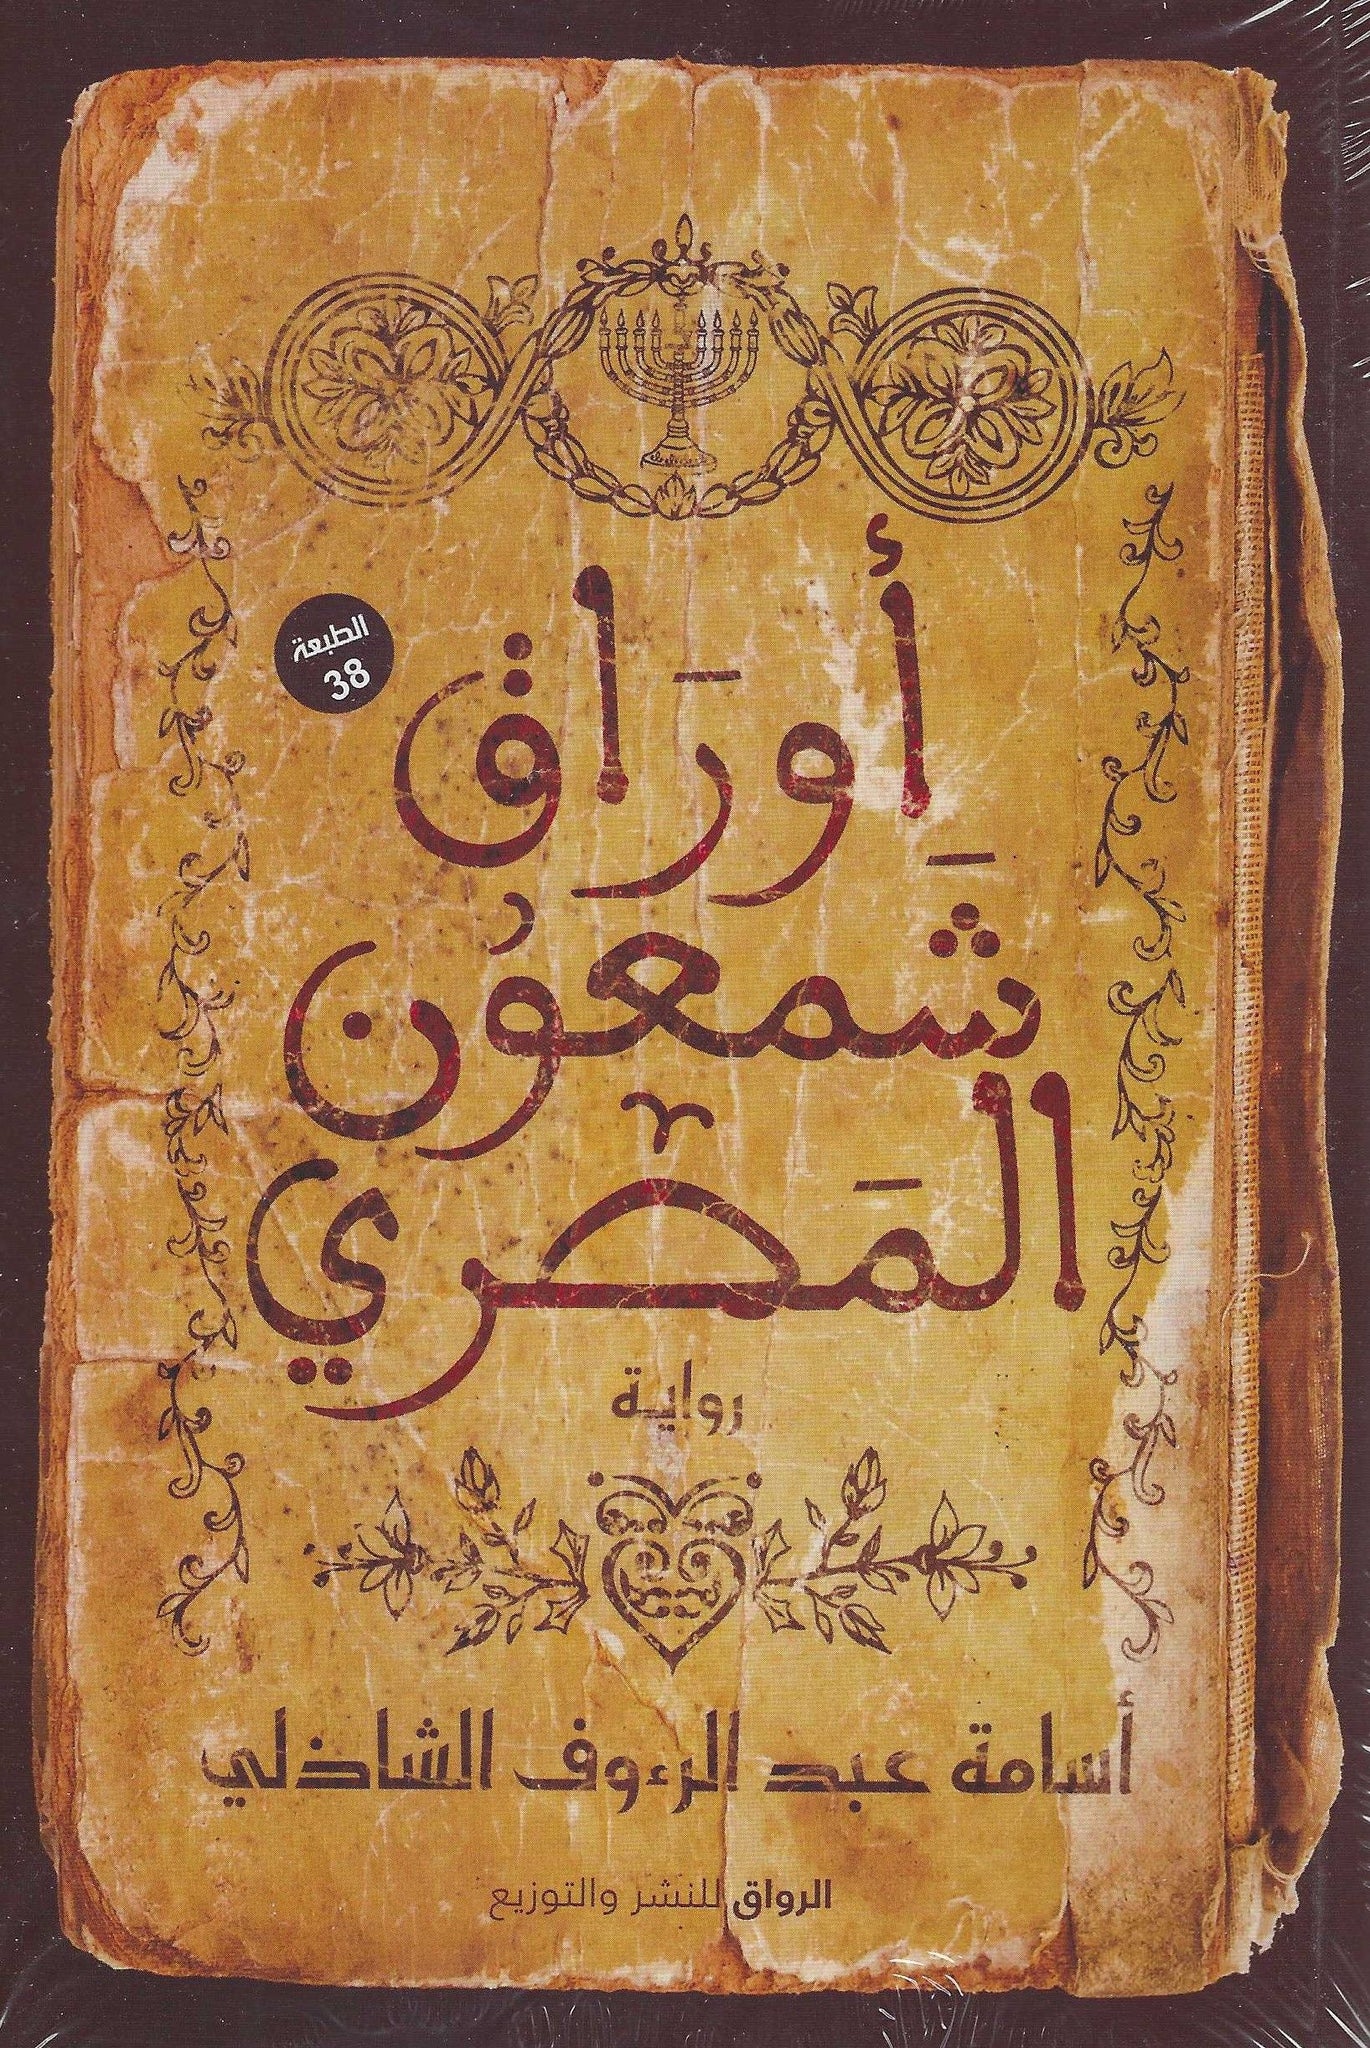 الطبعة
38
أَورَاق
شَمعُون
المَصْري
رواية
أسامة عبد الرءوف الشاذلي
الرواق للنشر والتوزيع